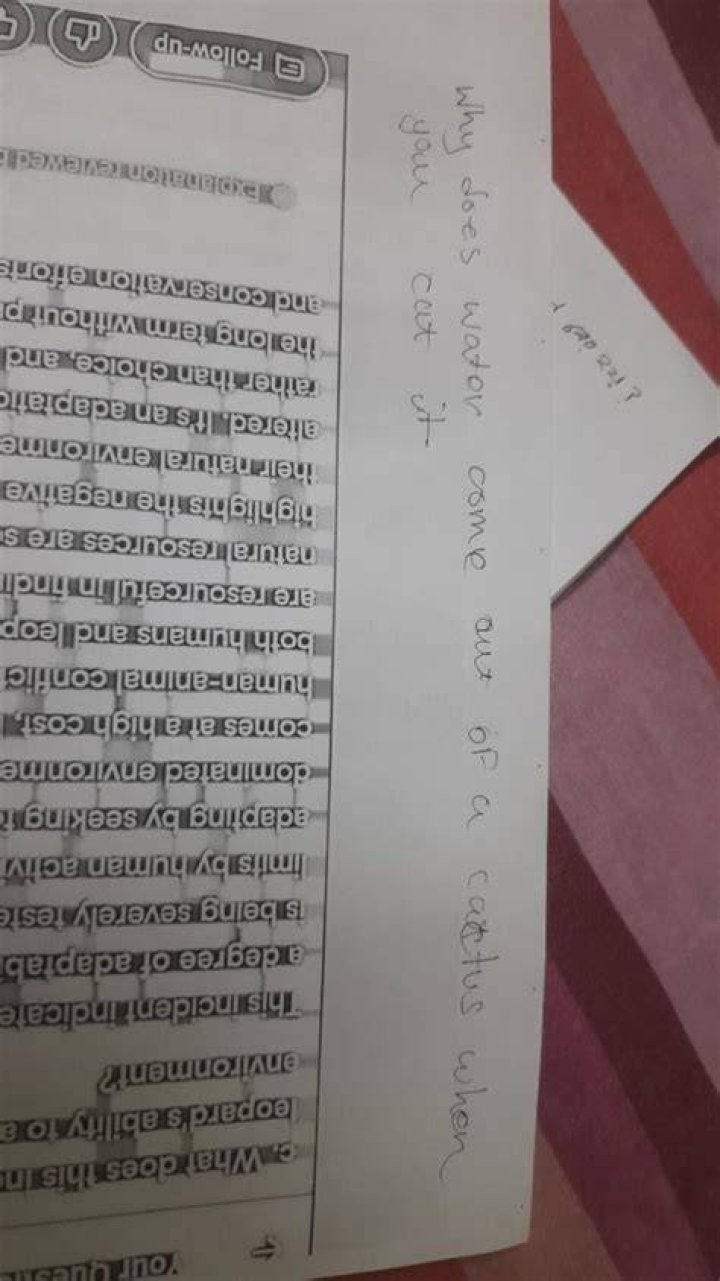 Why does water come out of a cactus when
you cut it
Your Quest
c. What does this in
leopard's ability to a
environment?
This incident indicate
a degree of adaptab
is being severely test
limits by human activ
adapting by seeking
dominated environme
comes at a high cost,
human-animal conflic
both humans and leop
are resourceful in findi
natural resources are s
highlights the negative
their natural environme
altered. It's an adaptatio
rather than choice, and
the long term without p
and conservation efforts
Explanation reviewed
Follow-up